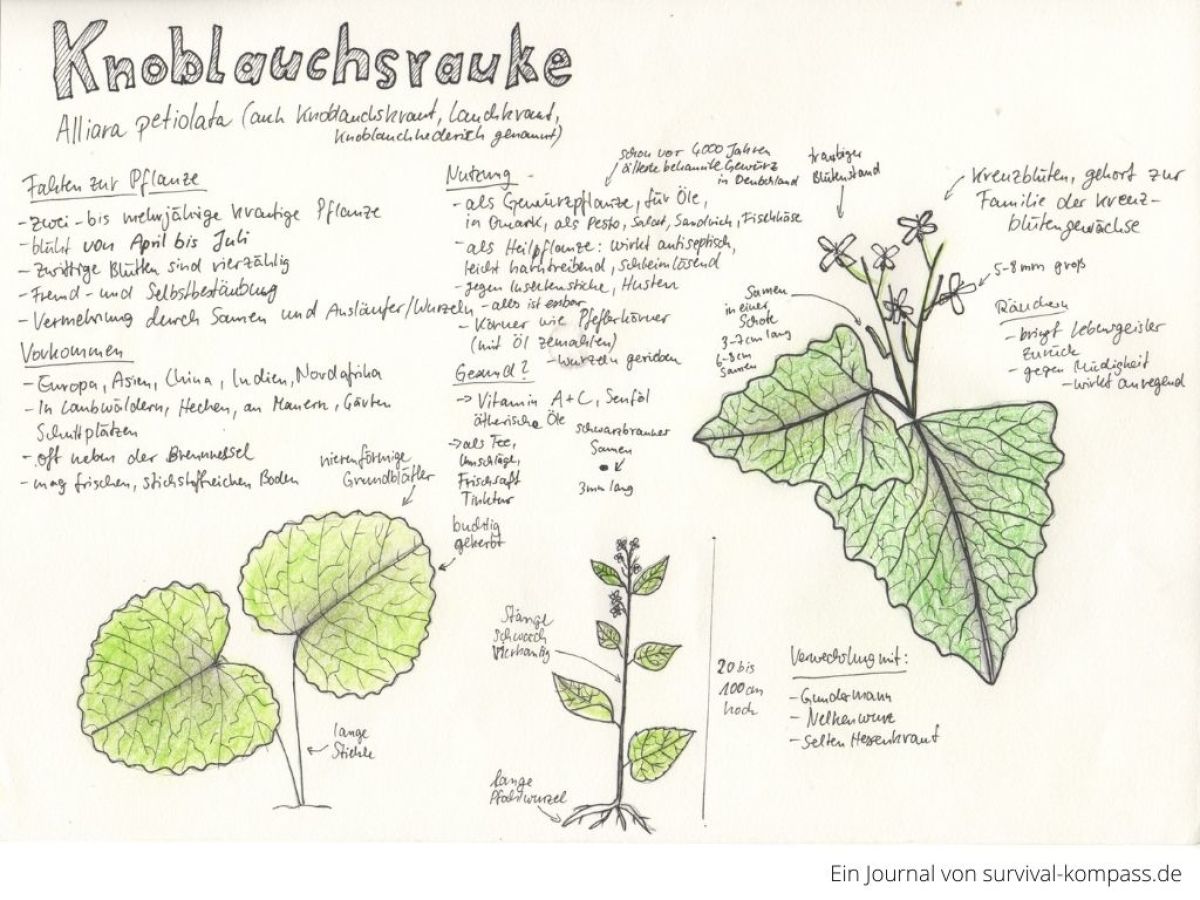 Knoblauchsrauke
Alliara petiolata (auch Knoblauchskraut, Lauchkraut,
Knoblauchhederich genannt)
Fakten zur Pflanze
- zwei- bis mehrjährige krautige Pflanze
- blüht von April bis Juli
- zwittrige Blüten sind vierzählig
- Fremd- und Selbstbestäubung
- Vermehrung durch Samen und Ausläufer/Wurzeln
Vorkommen
- Europa, Asien, China, Indien, Nordafrika
- In Laubwäldern, Hecken, an Mauern, Gärten
Schuttplätzen
- oft neben der Brennnessel
- mag frischen, stickstoffreichen Boden
Nutzung
schon vor 4000 Jahren
älteste bekannte Gewürz
in Deutschland
- als Gewürzpflanze, für Öle,
in Quark, als Pesto, Salat, Sandwich, Frischkäse
- als Heilpflanze: wirkt antiseptisch,
leicht harntreibend, schleimlösend
- gegen Insektenstiche, Husten
- alles ist essbar
- Körner wie Pfefferkörner
(mit Öl zermahlen)
- Wurzeln gerieben
Gesund?
-> Vitamin A+C, Senföl
ätherische Öle
-> als Tee,
Umschläge,
Frischsaft
Tinktur
schwarzbrauner
Samen
3mm lang
traubiger
Blütenstand
Kreuzblüten, gehört zur
Familie der Kreuz-
blütengewächse
5-8mm groß
Samen
in einer
Schote
3-7cm lang
6-8cm
Samen
Räuchern
- bringt Lebensgeister
zurück
- gegen Müdigkeit
- wirkt anregend
nierenförmige
Grundblätter
buchtig
gekerbt
lange
Stiehle
Stängel
schwach
vierkantig
lange
Pfahlwurzel
20 bis
100cm
hoch
Verwechslung mit:
- Gundermann
- Nelkenwurz
- Selten Hexenkraut
Ein Journal von survival-kompass.de